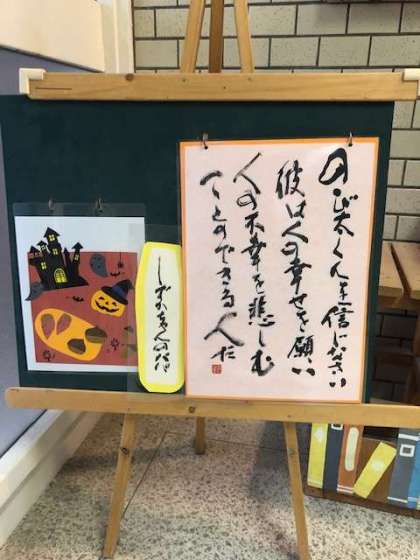 のび太くんを信じなさい
彼は人の幸せを願い
人の不幸を悲しむ
ことのできる人だ
しずかちゃんのパパ